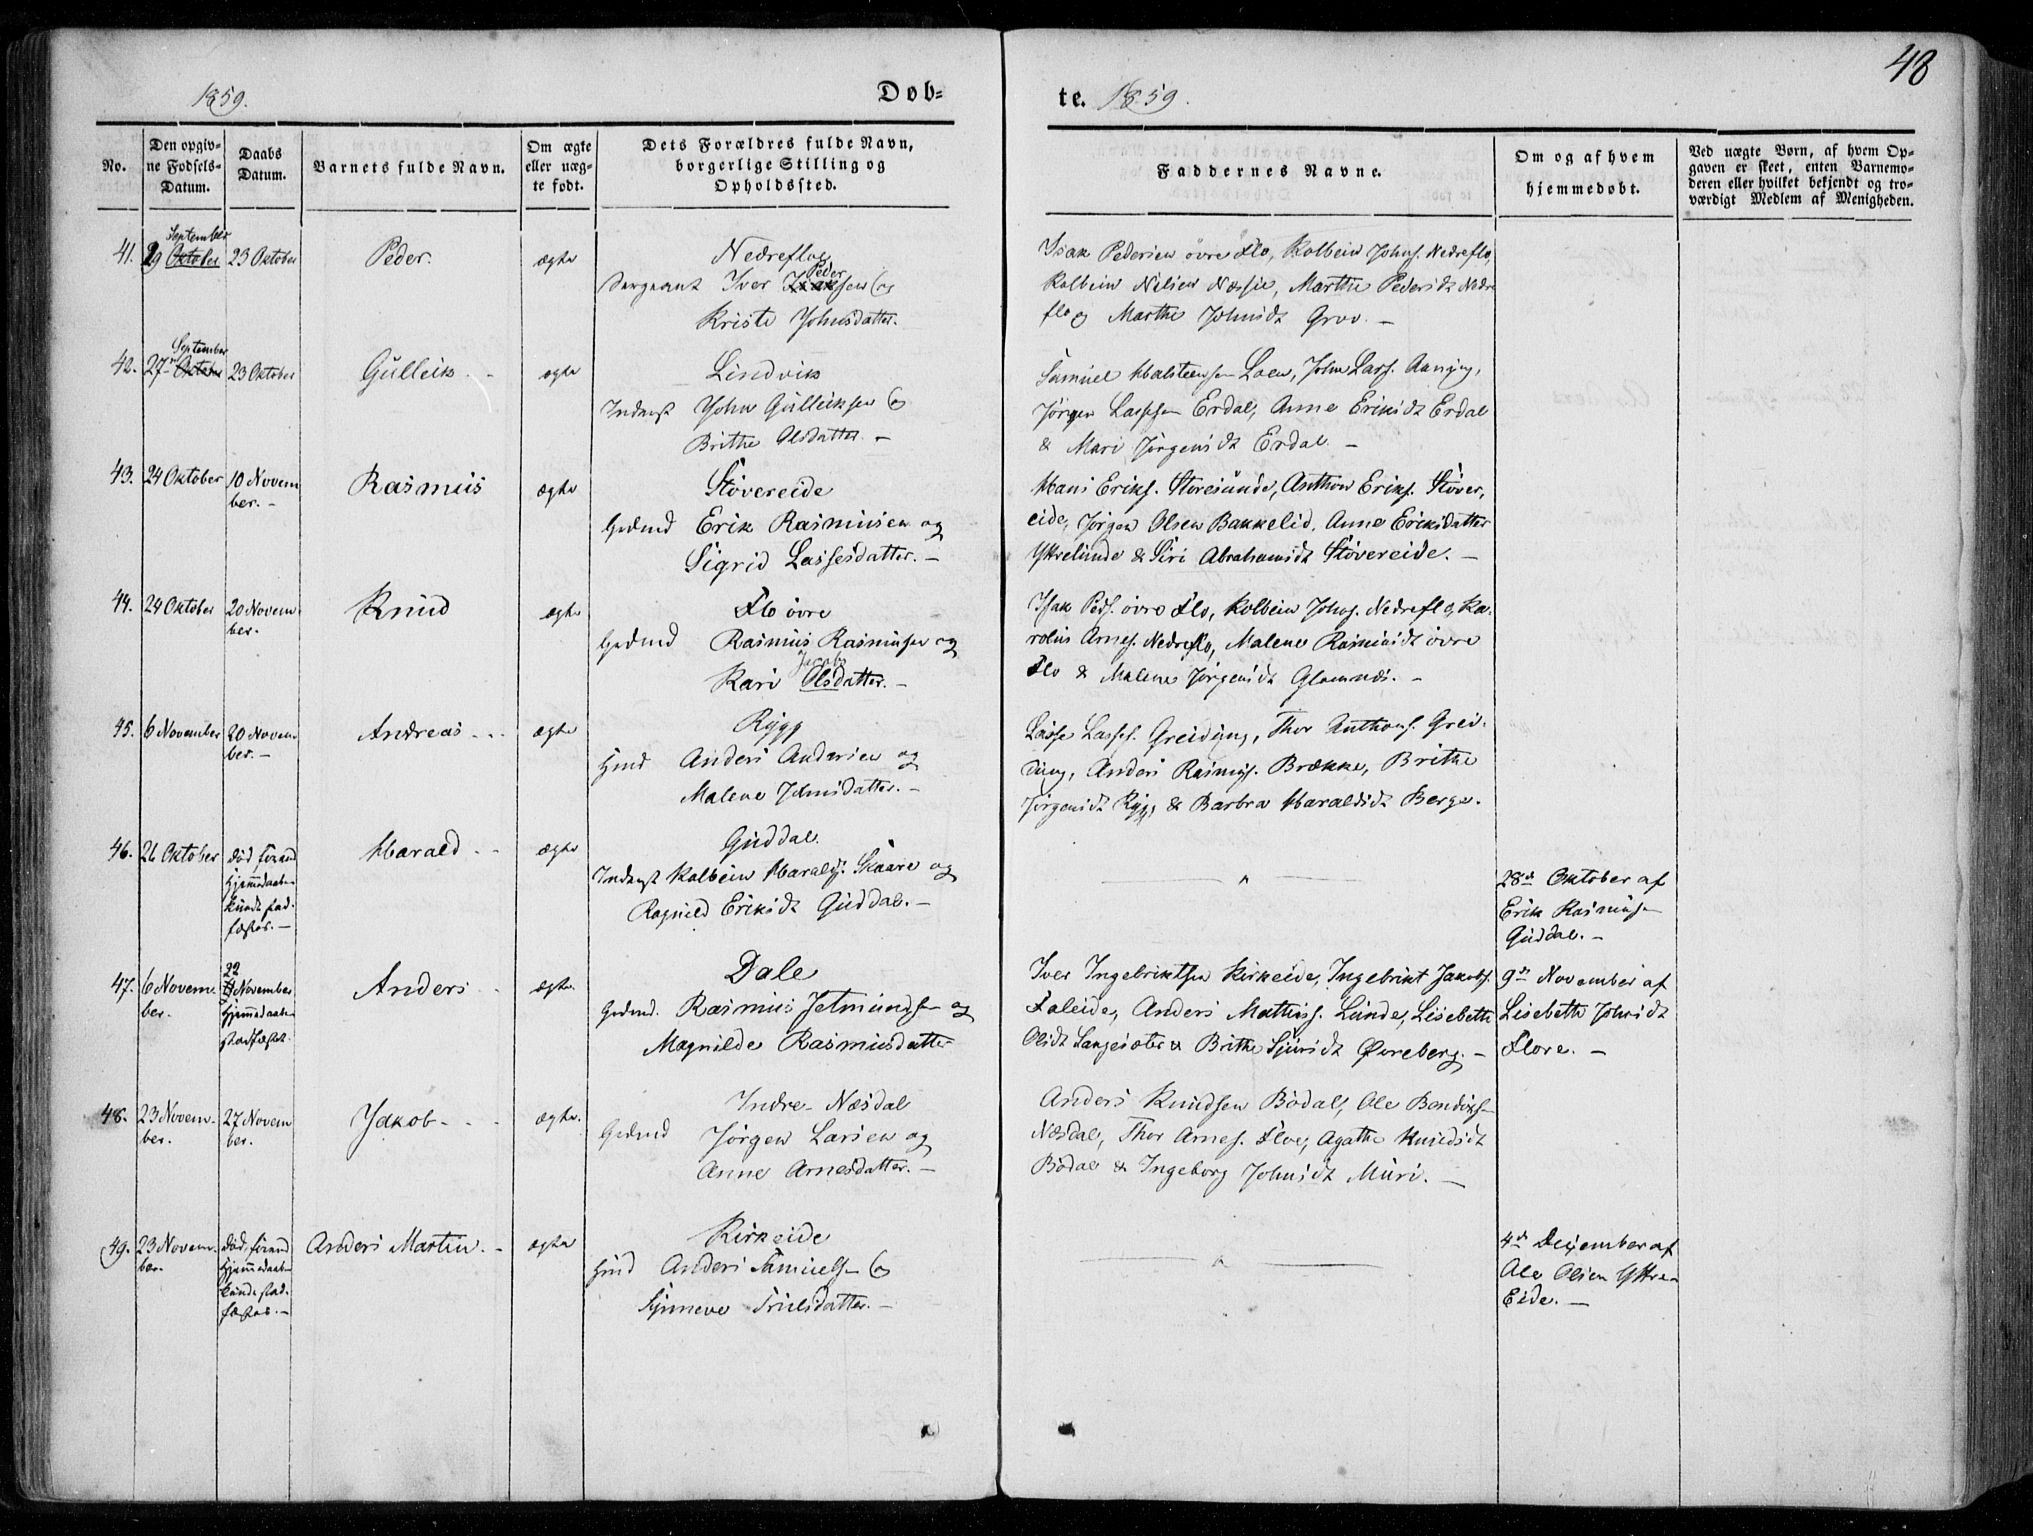 48
1859. Døb=
te. 1859.
No.
Den opgiv=
ne Fødsels=
Datum.
Daabs
Datum.
Barnets fulde Navn.
Om ægte
eller uæg=
te født.
Dets Forældres fulde Navn,
borgerlige Stilling og
Opholdssted.
Faddernes Navne.
Om og af hvem
hjemmedøbt.
Ved uægte Børn, af hvem Op=
gaven er skeet, enten Barnemo=
deren eller hvilket bekjendt og tro=
værdigt Medlem af Menigheden.
September
41. 29 Oktober 23 Oktober Peder. ægte
Nedreflog
Peder
Sergeant Iver Isaksen og
Kristi Johnsdatter.
Isak Pedersen øvre Flo, Kolbein Johns. Nedreflo,
Kolbein Nilsen Næssie, Marthe Pedersdt Nedre
flo og Marthe Johnsdt Grov. —
September
42. 27de Oktober 23 Oktober Gulleik - - ægte
Lindvik
Inderst John Gulleiksen og
Brithe Olsdatter. —
Samuel Halsteensen Loen, John Lass. Aaning,
Jørgen Lassesen Erdal, Anne Eriksdt Erdal
& Mari Jørgensdt Erdal. —
43. 24 Oktober 10 Novem
ber. - Rasmus ægte
Støvereide
Grdmd Erik Rasmusen og
Sigrid Lassesdatter. —
Hans Eriks. Storesunde, Anthon Eriks. Støver,
eide, Jørgen Olsen Bakkelid, Anne Eriksdatter
Yttrelunde & Siri Abrahamsdt Støvereide. —
44. 24 Oktober 20 Novem-
ber. Knud ægte
Flo øvre
Grdmd Rasmus Rasmusen og
Jacobs
Kari Olsdatter. —
Isak Peds. øvre Flo, Kolbein Johns. Nedreflo, Ka-
rolus Arnes. Nedreflo, Malene Rasmusdt øvre
Flo & Malene Jørgensdt Glomnæs. -
45. 6 November 20 Novem
ber. - Andreas - - - ægte
Rygg
Hmd Anders Andersen og
Malene Johnsdatter. —
Lasse Lasses. Greiding, Thor Anthons. Grei-
ding, Anders Rasmus. Brække, Brithe
Jørgensdt Rygg & Barbra Haraldsdt Berge.
46. 26 Oktober død førend
Hjemmedaaben
kunde stad-
fæstes. — Harald - - ægte
Guddal.
Inderst Kolbein Haralds. Skaare og
Ragnild Eriksdt Guddal. —
— " —
28de Oktober af
Erik Rasmusen
Guddal. —
47. 6 Novem-
ber.
22
November
Hjemmedaaben
stadfæstet. Anders - ægte.
Dale
Grdmd. Rasmus Jetmundsen og
Magnilde Rasmusdatter
Iver Ingebriktsen Kirkeide, Ingebrikt Jakobs.
Faleide, Anders Mathias. Lunde, Lisebeth
Olsdt Sangesæter & Brithe Sjursdt Øvreberg. —
9de November af
Lisebeth Johnsdt
Flore. —
48. 23 Novem-
ber. 27 Novem
ber. Jakob - - - ægte.
Indre-Næsdal
Grdmd Jørgen Larsen og
Anne Arnesdatter. —
Anders Knudsen Bødal, Ole Bendixsen
Næsdal, Thor Arnes. Floe, Agathe Knudsdt
Bødal & Ingeborg Johnsdt Muri. —
49. 23 Novem-
ber. død, førend
Hjemmedaaben
kunde stad-
fæstes. — Anders Martin. - ægte
Kirkeide
Hmd Anders Samuelsen og
Synneve Trulsdatter. —
— " —
4de December af
Ole Olsen Yttre-
Eide. —